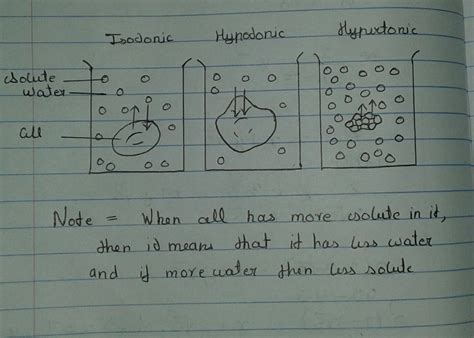 Isotonic Hypotonic Hypertonic
solute
water
cell
Note = When cell has more solute in it,
then it means that it has less water
and if more water then less solute